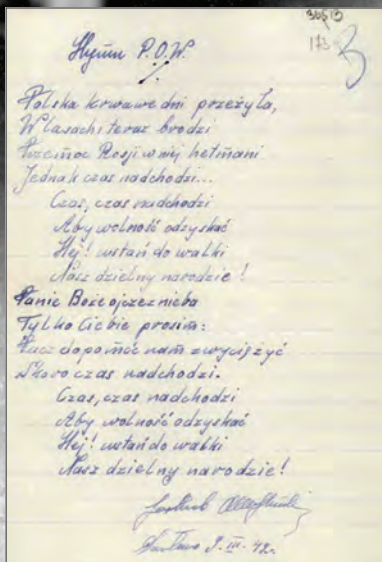 365/3
173
Hymn P.O.W.
Polska krwawe dni przeżyła,
W lasach teraz brodzi
Przemoc Rosji w niej hetmani
Jednak czas nadchodzi...
Czas, czas nadchodzi
Aby wolność odzyskać
Hej! wstań do walki
Nasz dzielny narodzie!
Panie Boże ojcze z nieba
Tylko Ciebie prosim:
Racz dopomóc nam zwyciężyć
Skoro czas nadchodzi.
Czas, czas nadchodzi
Aby wolność odzyskać
Hej! wstań do walki
Nasz dzielny narodzie!